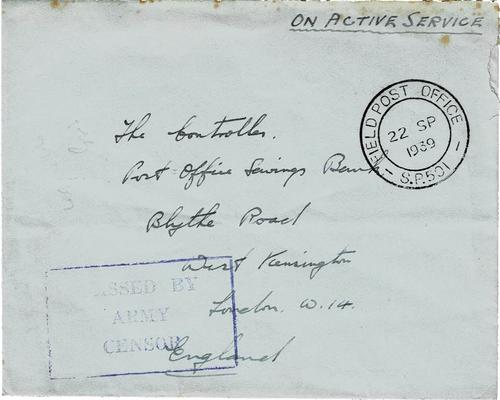 ON ACTIVE SERVICE
FIELD POST OFFICE
22 SP
1939
S.P.501
The Controller.
Post Office Savings Bank
Blythe Road
West Kensington
London. W.14.
England
PASSED BY
ARMY
CENSOR